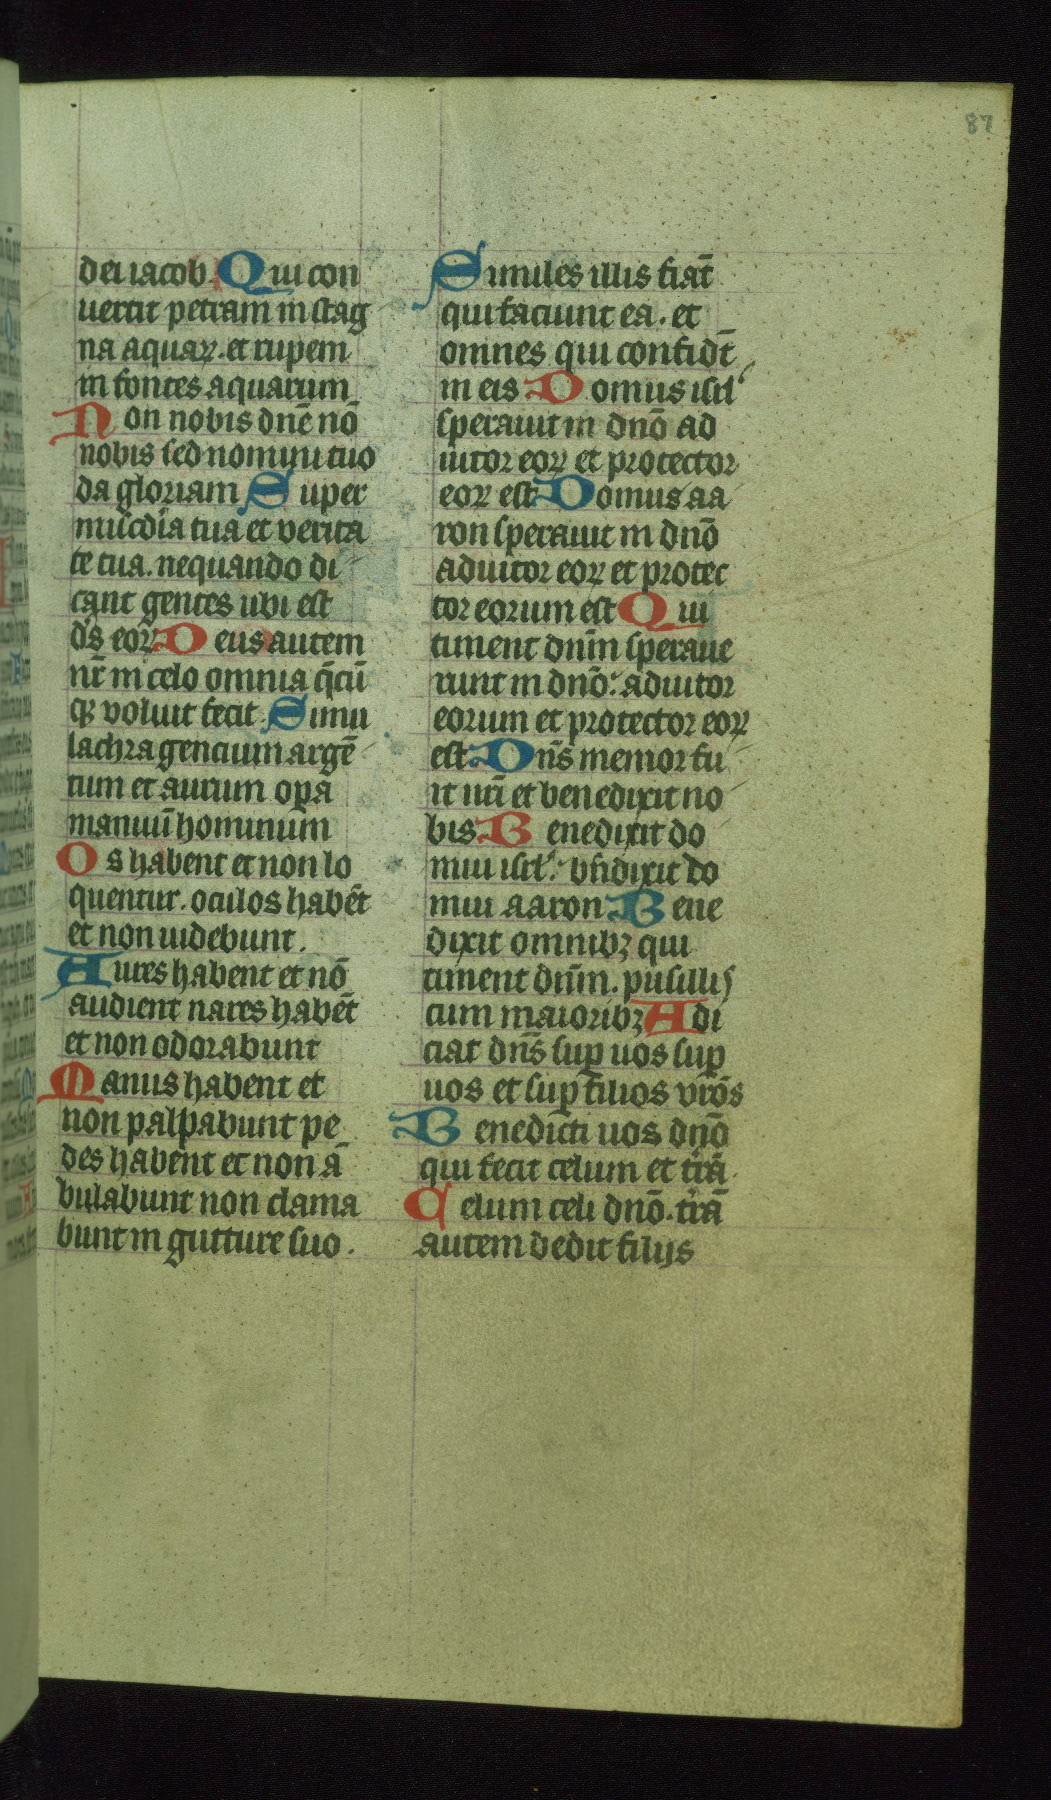 87
dei iacob Qui con
uertit petram in stag
na aquaꝝ. et rupem
in fontes aquarum
Non nobis dn̄e nō
nobis sed nomini tuo
da gloriam Super
misc̄dia tua et verita
te tua. nequando di
cant gentes ubi est
ds̄ eoꝝ Deus autem
nr̄ in celo omnia q̄cū
qꝫ voluit fecit. Simu
lachra gencium argē
tum et aurum oꝑa
manuū hominum
Os habent et non lo
quentur. oculos habēt
et non uidebunt.
Aures habent et nō
audient nares habēt
et non odorabunt
Manus habent et
non palpabunt pe
des habent et non ā
bulabunt non clama
bunt in gutture suo.
Similes illis fiāt
qui faciunt ea. et
omnes qui confidt̄
in eis Domus isrl̓
sperauit in dnō ad
iutor eoꝝ et protector
eoꝝ est Domus aa
ron sperauit in dnō
adiutor eoꝝ et protec
tor eorum est Qui
timent dnm̄ speraue
runt in dnō. adiutor
eorum et protector eoꝝ
est Dns̄ memor fu
it nr̄i et benedixit no
bis Benedixit do
mui isrl̓. bn̄dixit do
mui aaron Bene
dixit omnibꝫ qui
timent dnm̄. pusillis
cum maioribꝫ Adi
ciat dns̄ suꝑ uos suꝑ
uos et suꝑ filios vrōs
Benedicti uos dnō
qui fecit celum et tr̄ā
Celum celi dnō. tr̄ā
autem dedit filijs